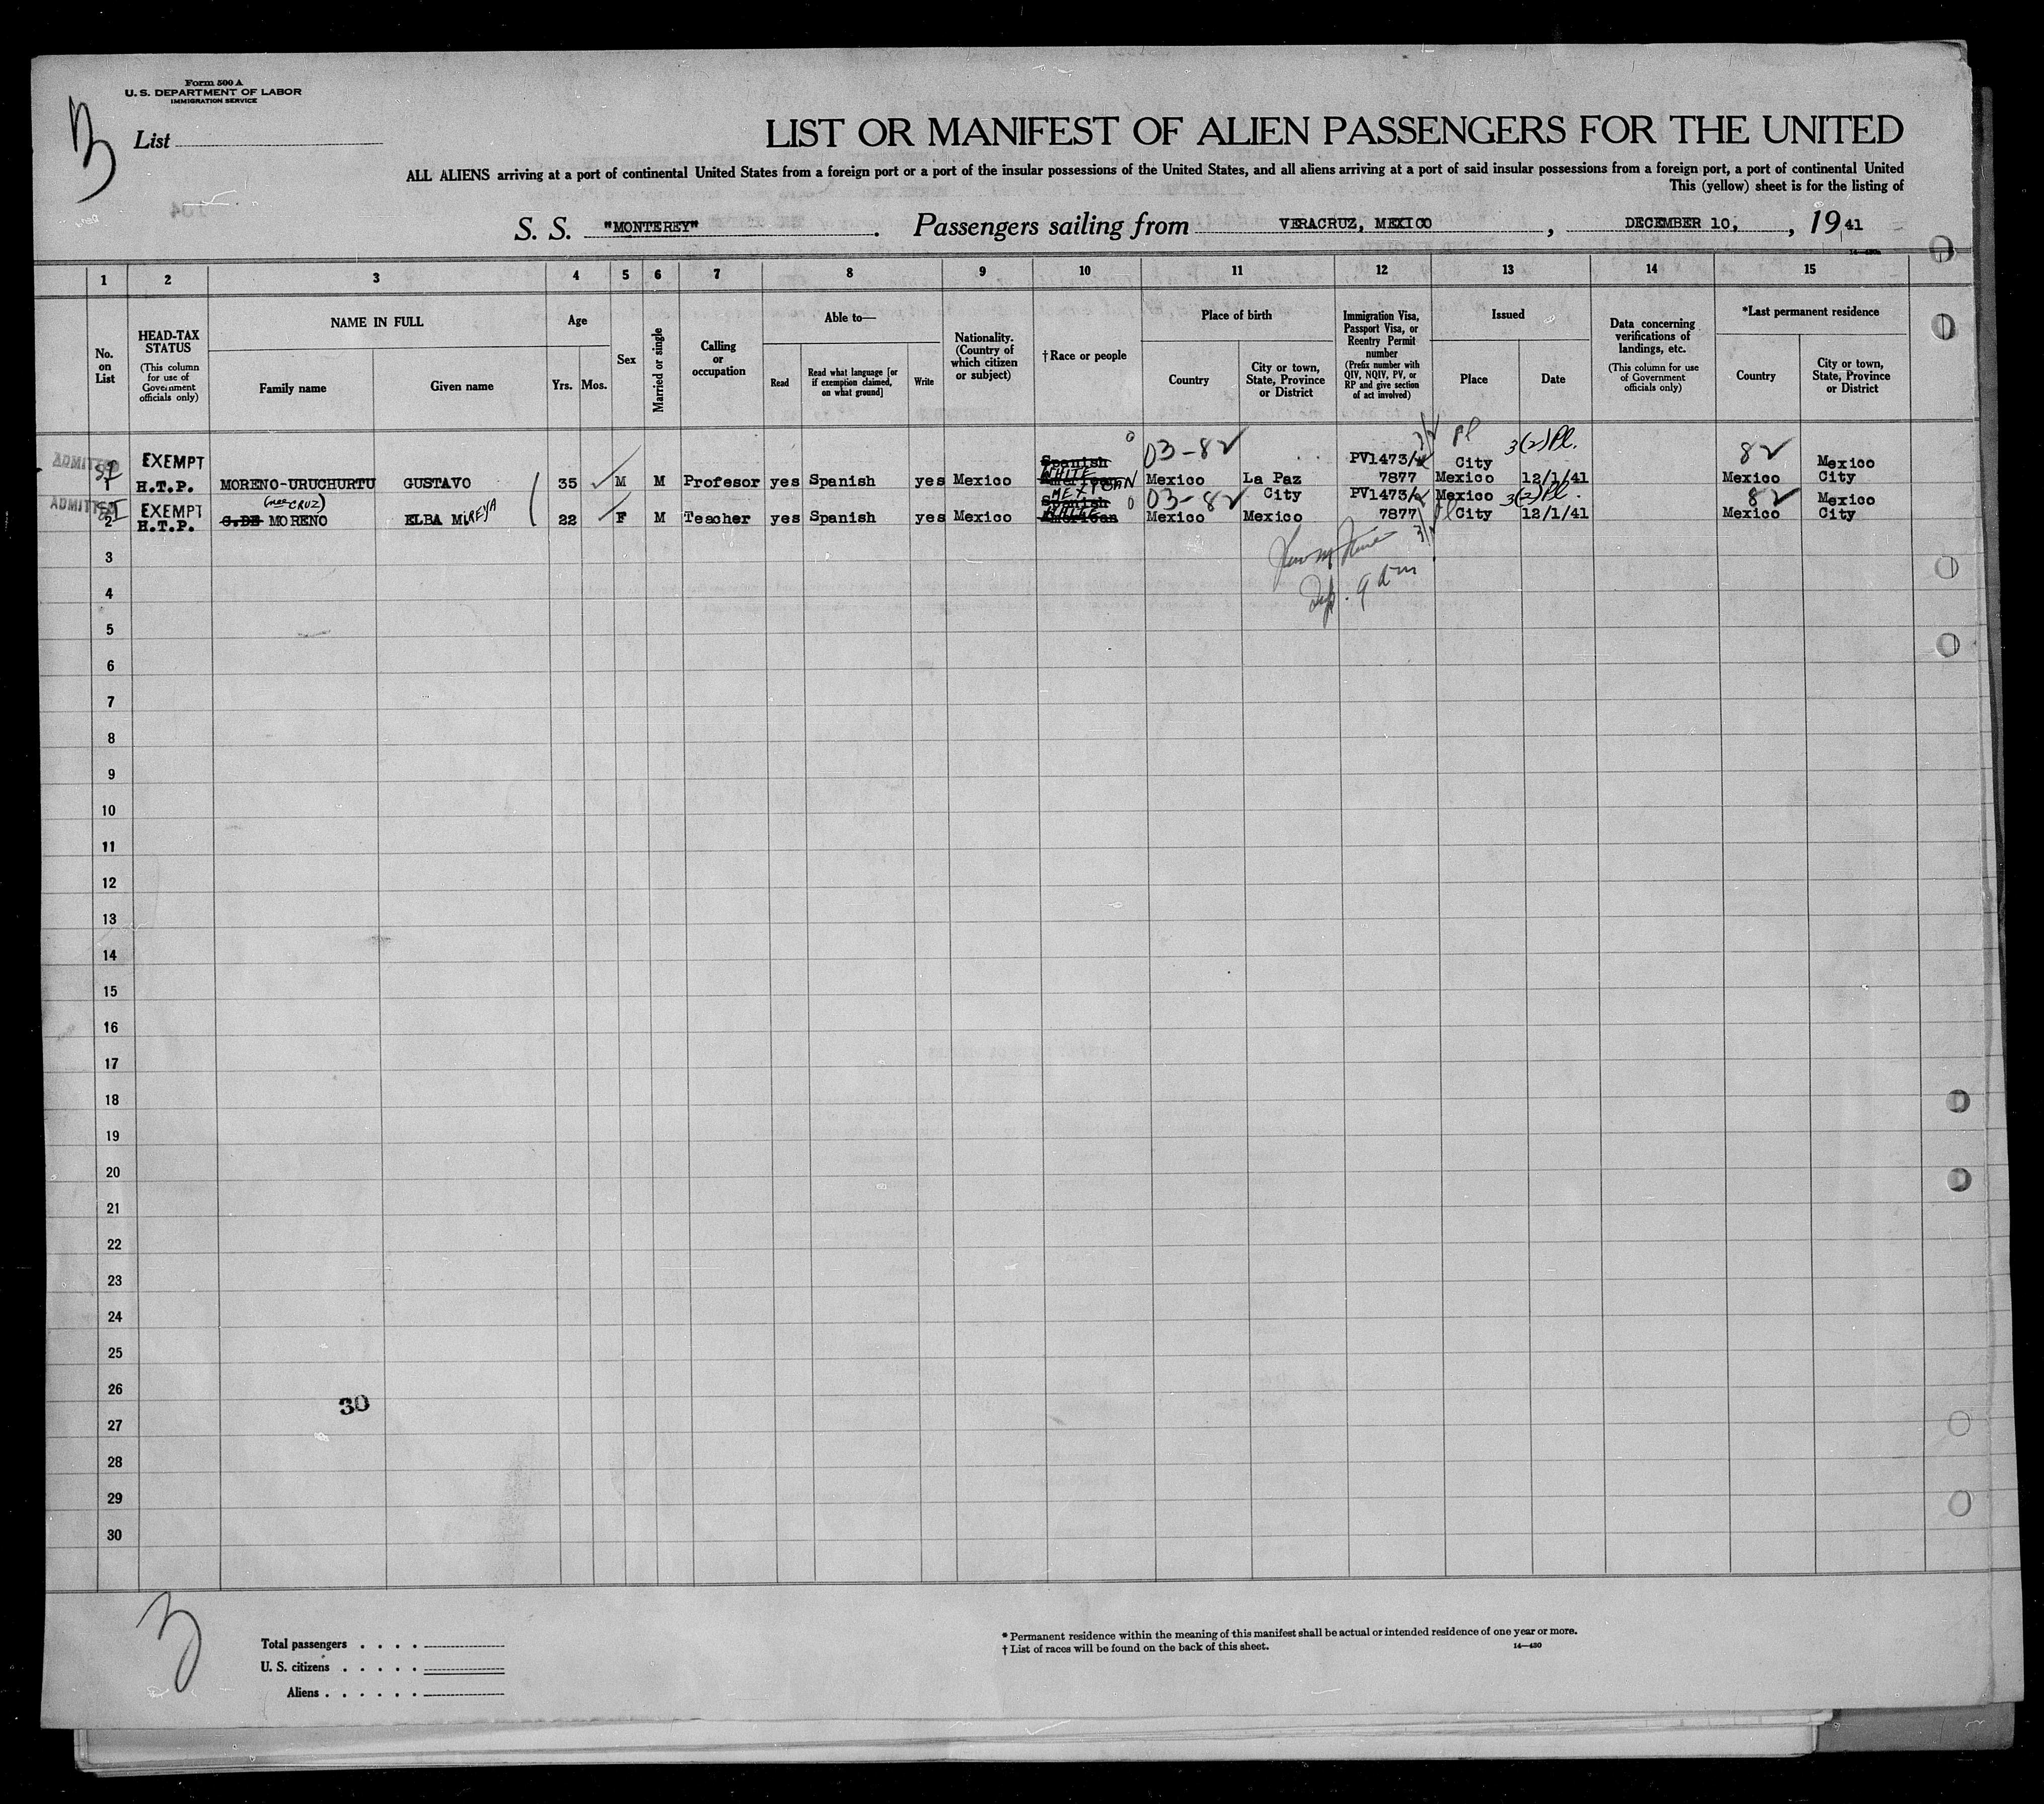 Form 500 A
U. S. DEPARTMENT OF LABOR
IMMIGRATION SERVICE
3
List
LIST OR MANIFEST OF ALIEN PASSENGERS FOR THE UNITED
ALL ALIENS arriving at a port of continental United States from a foreign port or a port of the insular possessions of the United States, and all aliens arriving at a port of said insular possessions from a foreign port, a port of continental United
This (yellow) sheet is for the listing of
S. S. "MONTEREY". Passengers sailing from VERACRUZ, MEXICO, DECEMBER 10, , 19 41
14—430
1 2 3 4 5 6 7 8 9 10 11 12 13 14 15
No. on List
HEAD-TAX STATUS (This column for use of Government officials only)
NAME IN FULL
Family name
Given name
Age
Yrs. Mos.
Sex
Married or single
Calling or occupation
Able to—
Read
Read what language [or if exemption claimed, on what ground]
Write
Nationality. (Country of which citizen or subject)
†Race or people
Place of birth
Country
City or town, State, Province or District
Immigration Visa, Passport Visa, or Reentry Permit number (Prefix number with QIV, NQIV, PV, or RP and give section of act involved)
Issued
Place
Date
Data concerning verifications of landings, etc. (This column for use of Government officials only)
*Last permanent residence
Country
City or town, State, Province or District
ADMITTED EXEMPT Spanish 03-82 PV1473/ Pl City 3(2)Pl. 82 Mexico
1 H.T.P. MORENO-URUCHURTU GUSTAVO 35 M M Profesor yes Spanish yes Mexico WHITE American Mexico La Paz 7877 Mexico 12/1/41 Mexico City
ADMITTED EXEMPT (nee CRUZ) MEXICAN Spanish 03-82 City PV1473/ Mexico 3(2)Pl. 82 Mexico
2 H.T.P. C.DE MORENO ELBA MIREYA 22 F M Teacher yes Spanish yes Mexico WHITE American Mexico Mexico 7877 City 12/1/41 Mexico City
3
9 am
4
5
6
7
8
9
10
11
12
13
14
15
16
17
18
19
20
21
22
23
24
25
26
30
27
28
29
30
3
Total passengers . . . .
U. S. citizens . . . . .
Aliens . . . . . .
* Permanent residence within the meaning of this manifest shall be actual or intended residence of one year or more.
† List of races will be found on the back of this sheet.
14—430